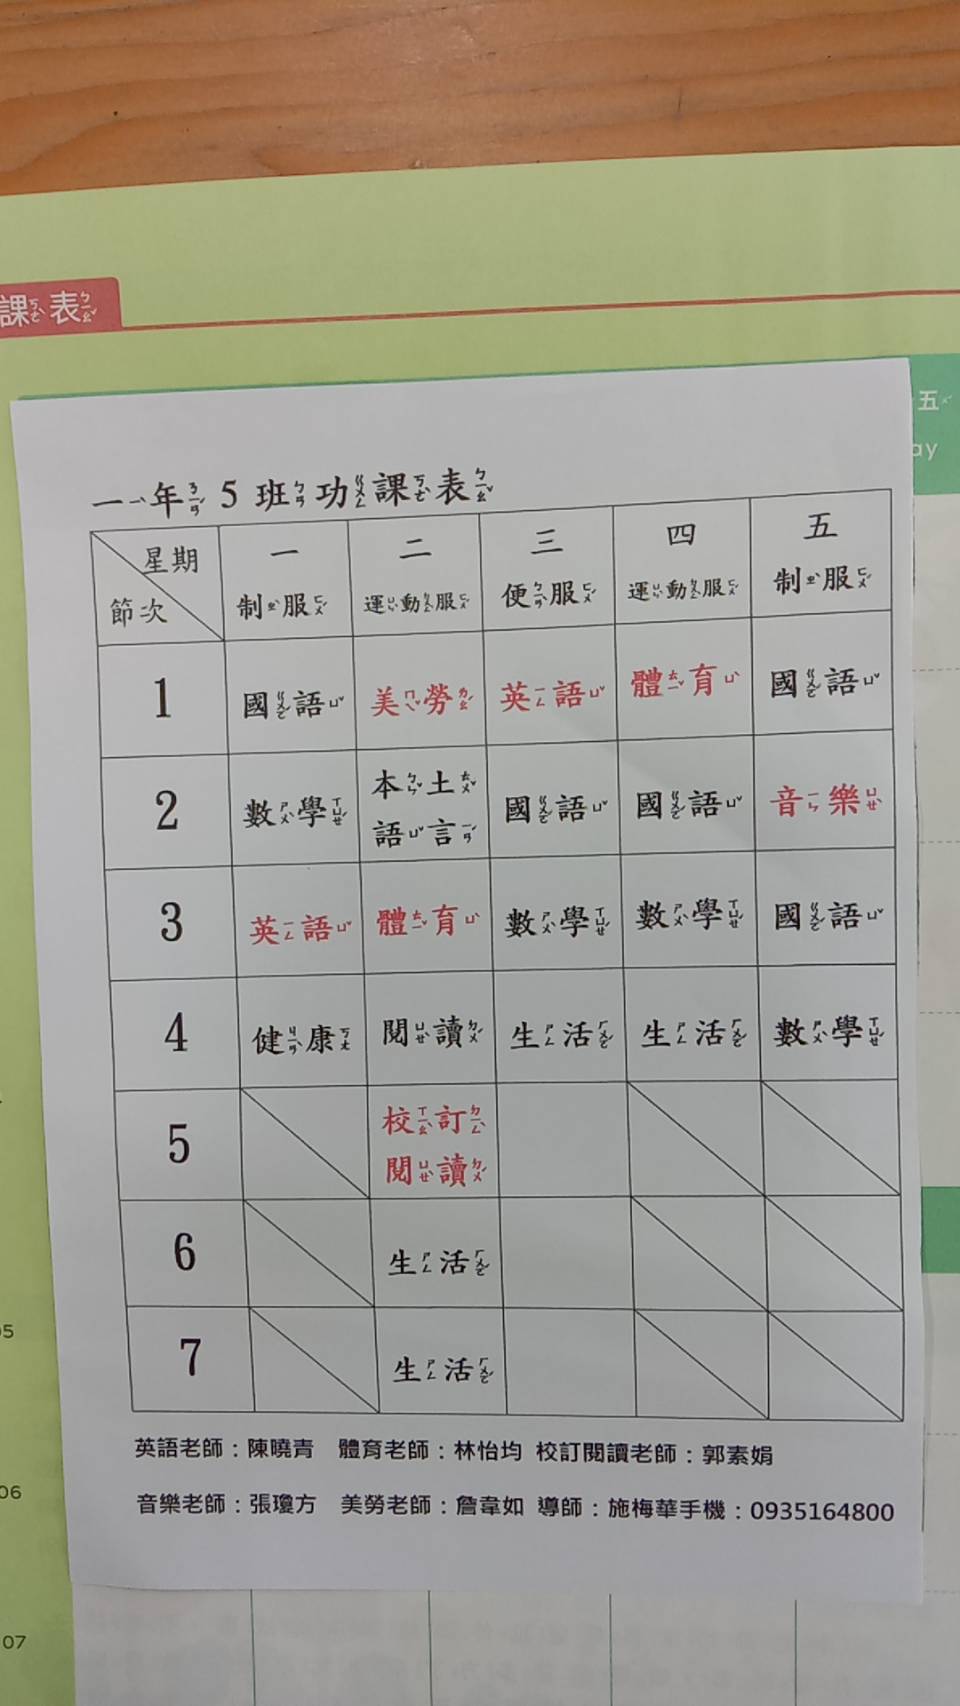 課表
五
ay
一年 5 班功課表
星期 一 二 三 四 五
節次 制服 運動服 便服 運動服 制服
1 國語 美勞 英語 體育 國語
2 數學 本土語言 國語 國語 音樂
3 英語 體育 數學 數學 國語
4 健康 閱讀 生活 生活 數學
5 校訂閱讀
6 生活
7 生活
英語老師：陳曉青 體育老師：林怡均 校訂閱讀老師：郭素娟
音樂老師：張瓊方 美勞老師：詹韋如 導師：施梅華手機：0935164800
05
06
07